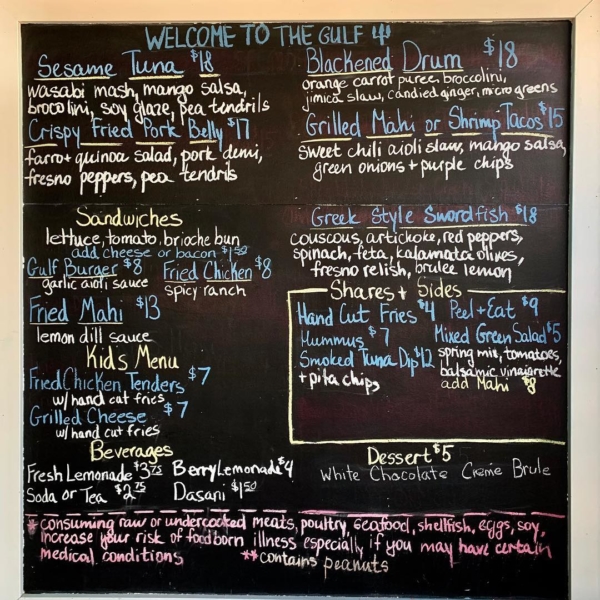 WELCOME TO THE GULF
Sesame Tuna $18
wasabi mash, mango salsa,
brocolini, soy glaze, pea tendrils
Crispy Fried Pork Belly $17
farro + quinoa salad, pork demi,
fresno peppers, pea tendrils
Blackened Drum $18
orange carrot puree, broccolini,
jimica slaw, candied ginger, micro greens
Grilled Mahi or Shrimp Tacos $15
sweet chili aioli slaw, mango salsa,
green onions + purple chips
Sandwiches
lettuce, tomato, brioche bun
add cheese or bacon $1.50
Gulf Burger $8
garlic aioli sauce
Fried Chicken $8
spicy ranch
Fried Mahi $13
lemon dill sauce
Kid's Menu
Fried Chicken Tenders $7
w/ hand cut fries
Grilled Cheese $7
w/ hand cut fries
Beverages
Fresh Lemonade $3.75
Berry Lemonade $4
Soda or Tea $2.75
Dasani $1.50
Greek Style Swordfish $18
couscous, artichoke, red peppers,
spinach, feta, kalamata olives,
fresno relish, brulee lemon
Shares + Sides
Hand Cut Fries $4
Hummus $7
Smoked Tuna Dip $12
+ pita chips
Peel + Eat $9
Mixed Green Salad $5
spring mix, tomatoes,
balsamic vinaigrette
add Mahi $8
Dessert $5
White Chocolate Creme Brule
* consuming raw or undercooked meats, poultry, seafood, shellfish, eggs, soy,
increase your risk of foodborn illness especially if you may have certain
medical conditions
** contains peanuts